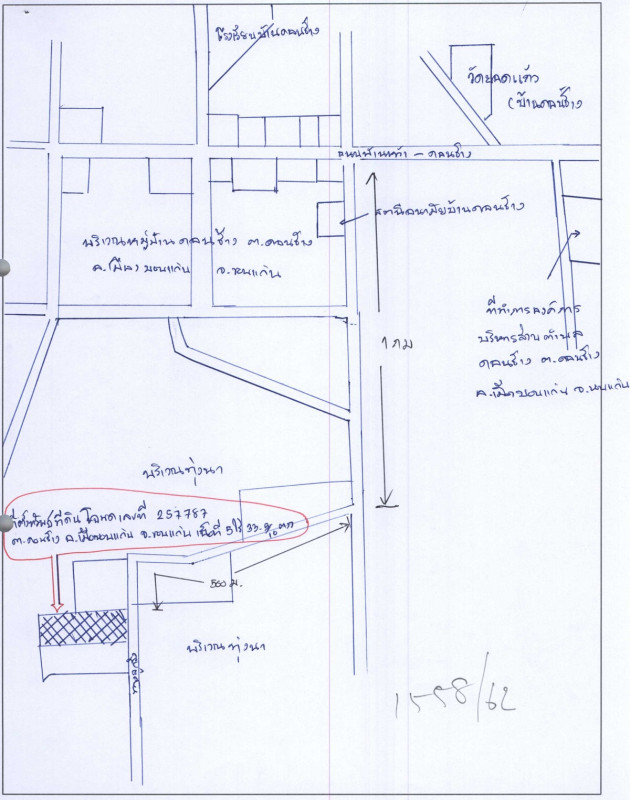 โรงเรียนบ้านดอนช้าง
วัดยอดแก้ว
(บ้านดอนช้าง
ถนนบ้านทุ่ม - ดอนช้าง
สถานีอนามัยบ้านดอนช้าง
บริเวณหมู่บ้านดอนช้าง ต.ดอนช้าง
อ.เมืองขอนแก่น จ.ขอนแก่น
ที่ทำการองค์การ
บริหารส่วนตำบล
ดอนช้าง ต.ดอนช้าง
อ.เมืองขอนแก่น จ.ขอนแก่น
1 กม
บริเวณทุ่งนา
ที่ตั้งทรัพย์ที่ดิน โฉนดเลขที่ 257787
ต.ดอนช้าง อ.เมืองขอนแก่น จ.ขอนแก่น เนื้อที่ 5 ไร่ 33
500 ม.
บริเวณทุ่งนา
1598/62